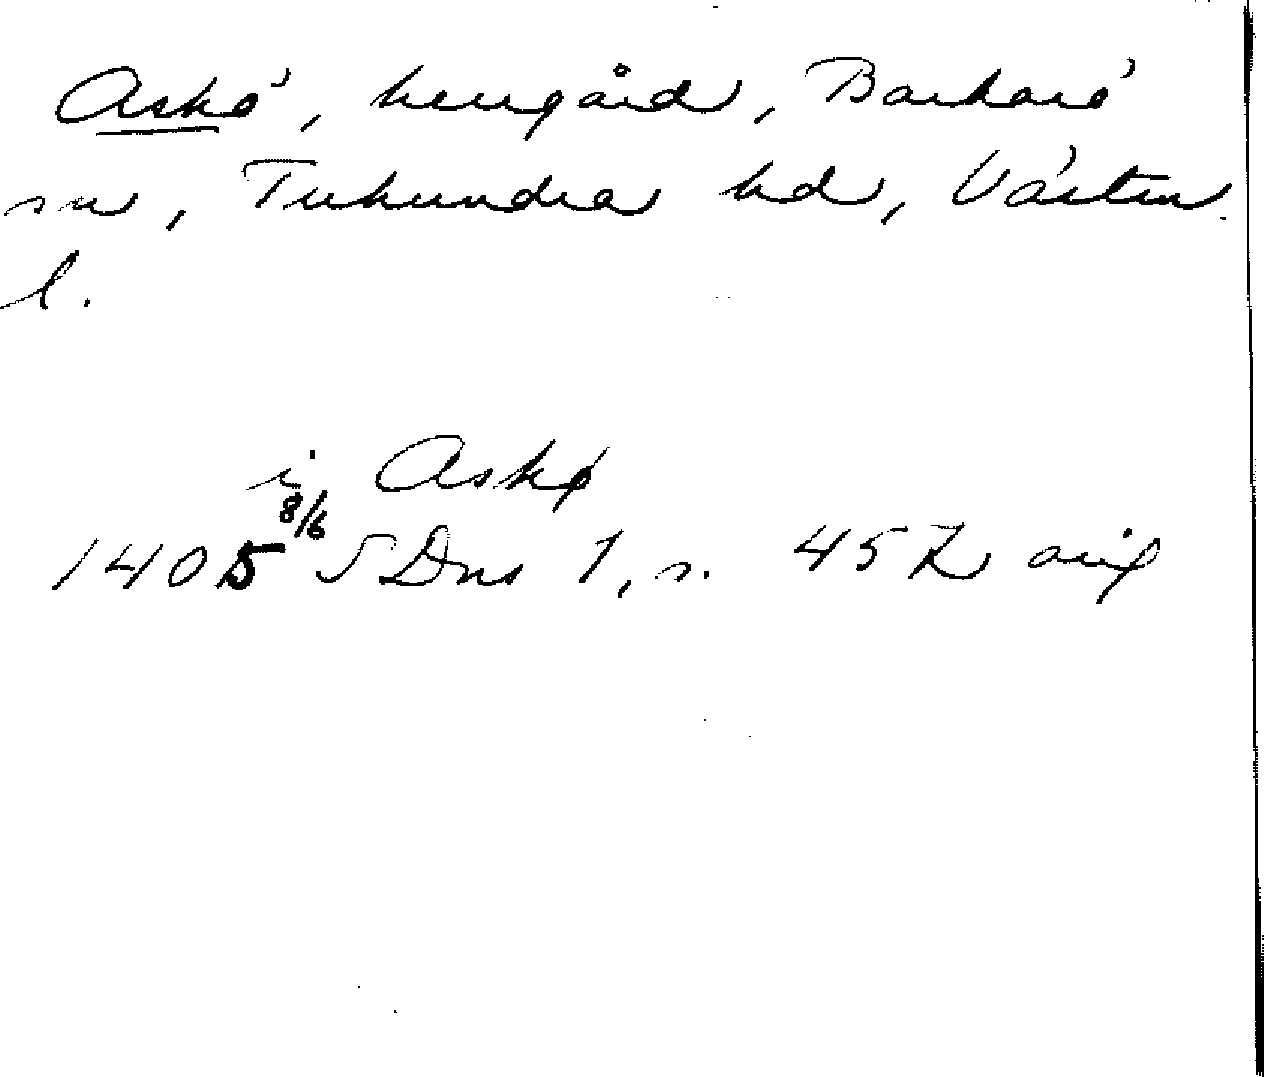 Askö, herrgård, Barkarö
sn, Tuhundra hd, Västm.
l.
i Askø
1405 8/6 SDns 1, s. 452 orig